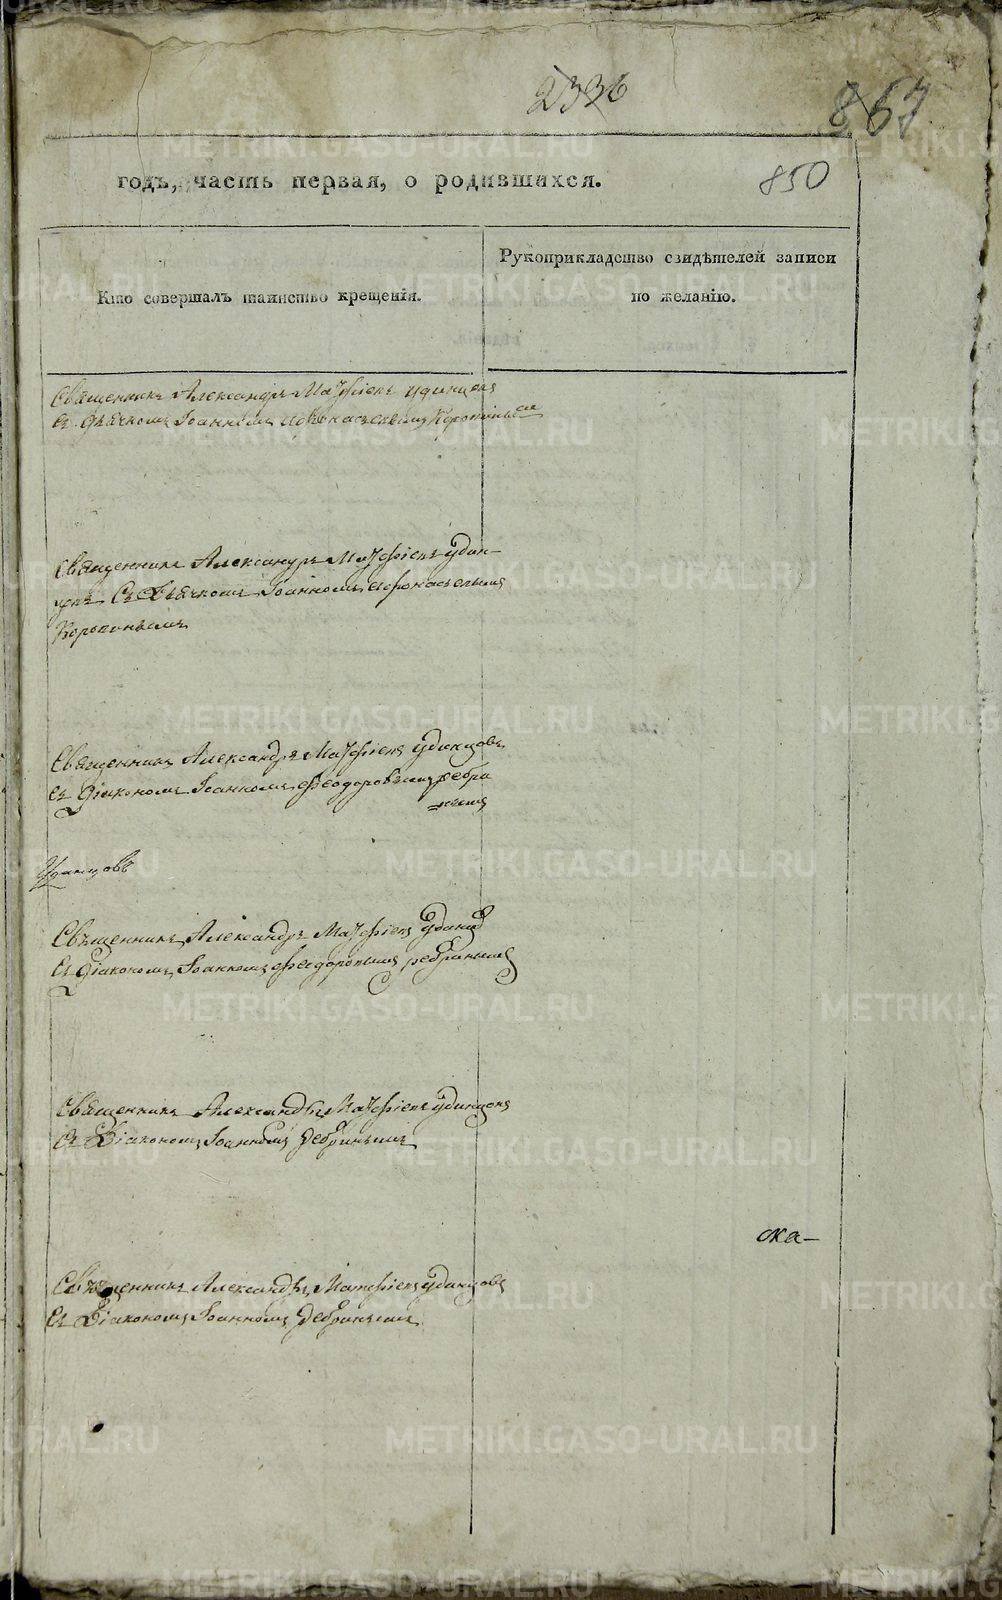 2336
867
850
годъ, часть первая, о родившихся.
Кто совершалъ таинство крещенія.
Рукоприкладство свидѣтелей записи
по желанію.
Священникъ Александръ Матфіевъ Удинцевъ
съ Дьячкомъ Іоанномъ
Священникъ Александръ Матфіевъ Удин-
цевъ Съ Дьячкомъ Іоанномъ Афонасьевымъ
Священникъ Александръ Матфіевъ Удинцовъ
съ Діакономъ Іоанномъ Феодоровымъ Ребри
=нымъ
Удинцовъ
Священникъ Александръ Матфіевъ Удинцо
съ Діакономъ Іоанномъ Феодоровымъ Ребринымъ
Священникъ Александръ Матфіевъ Удинцовъ
съ Діакономъ Іоанномъ Ребринымъ
ска-
Священникъ Александръ Матфіевъ Удинцовъ
съ Діакономъ Іоанномъ Ребринымъ
METRIKI.GASO-URAL.RU